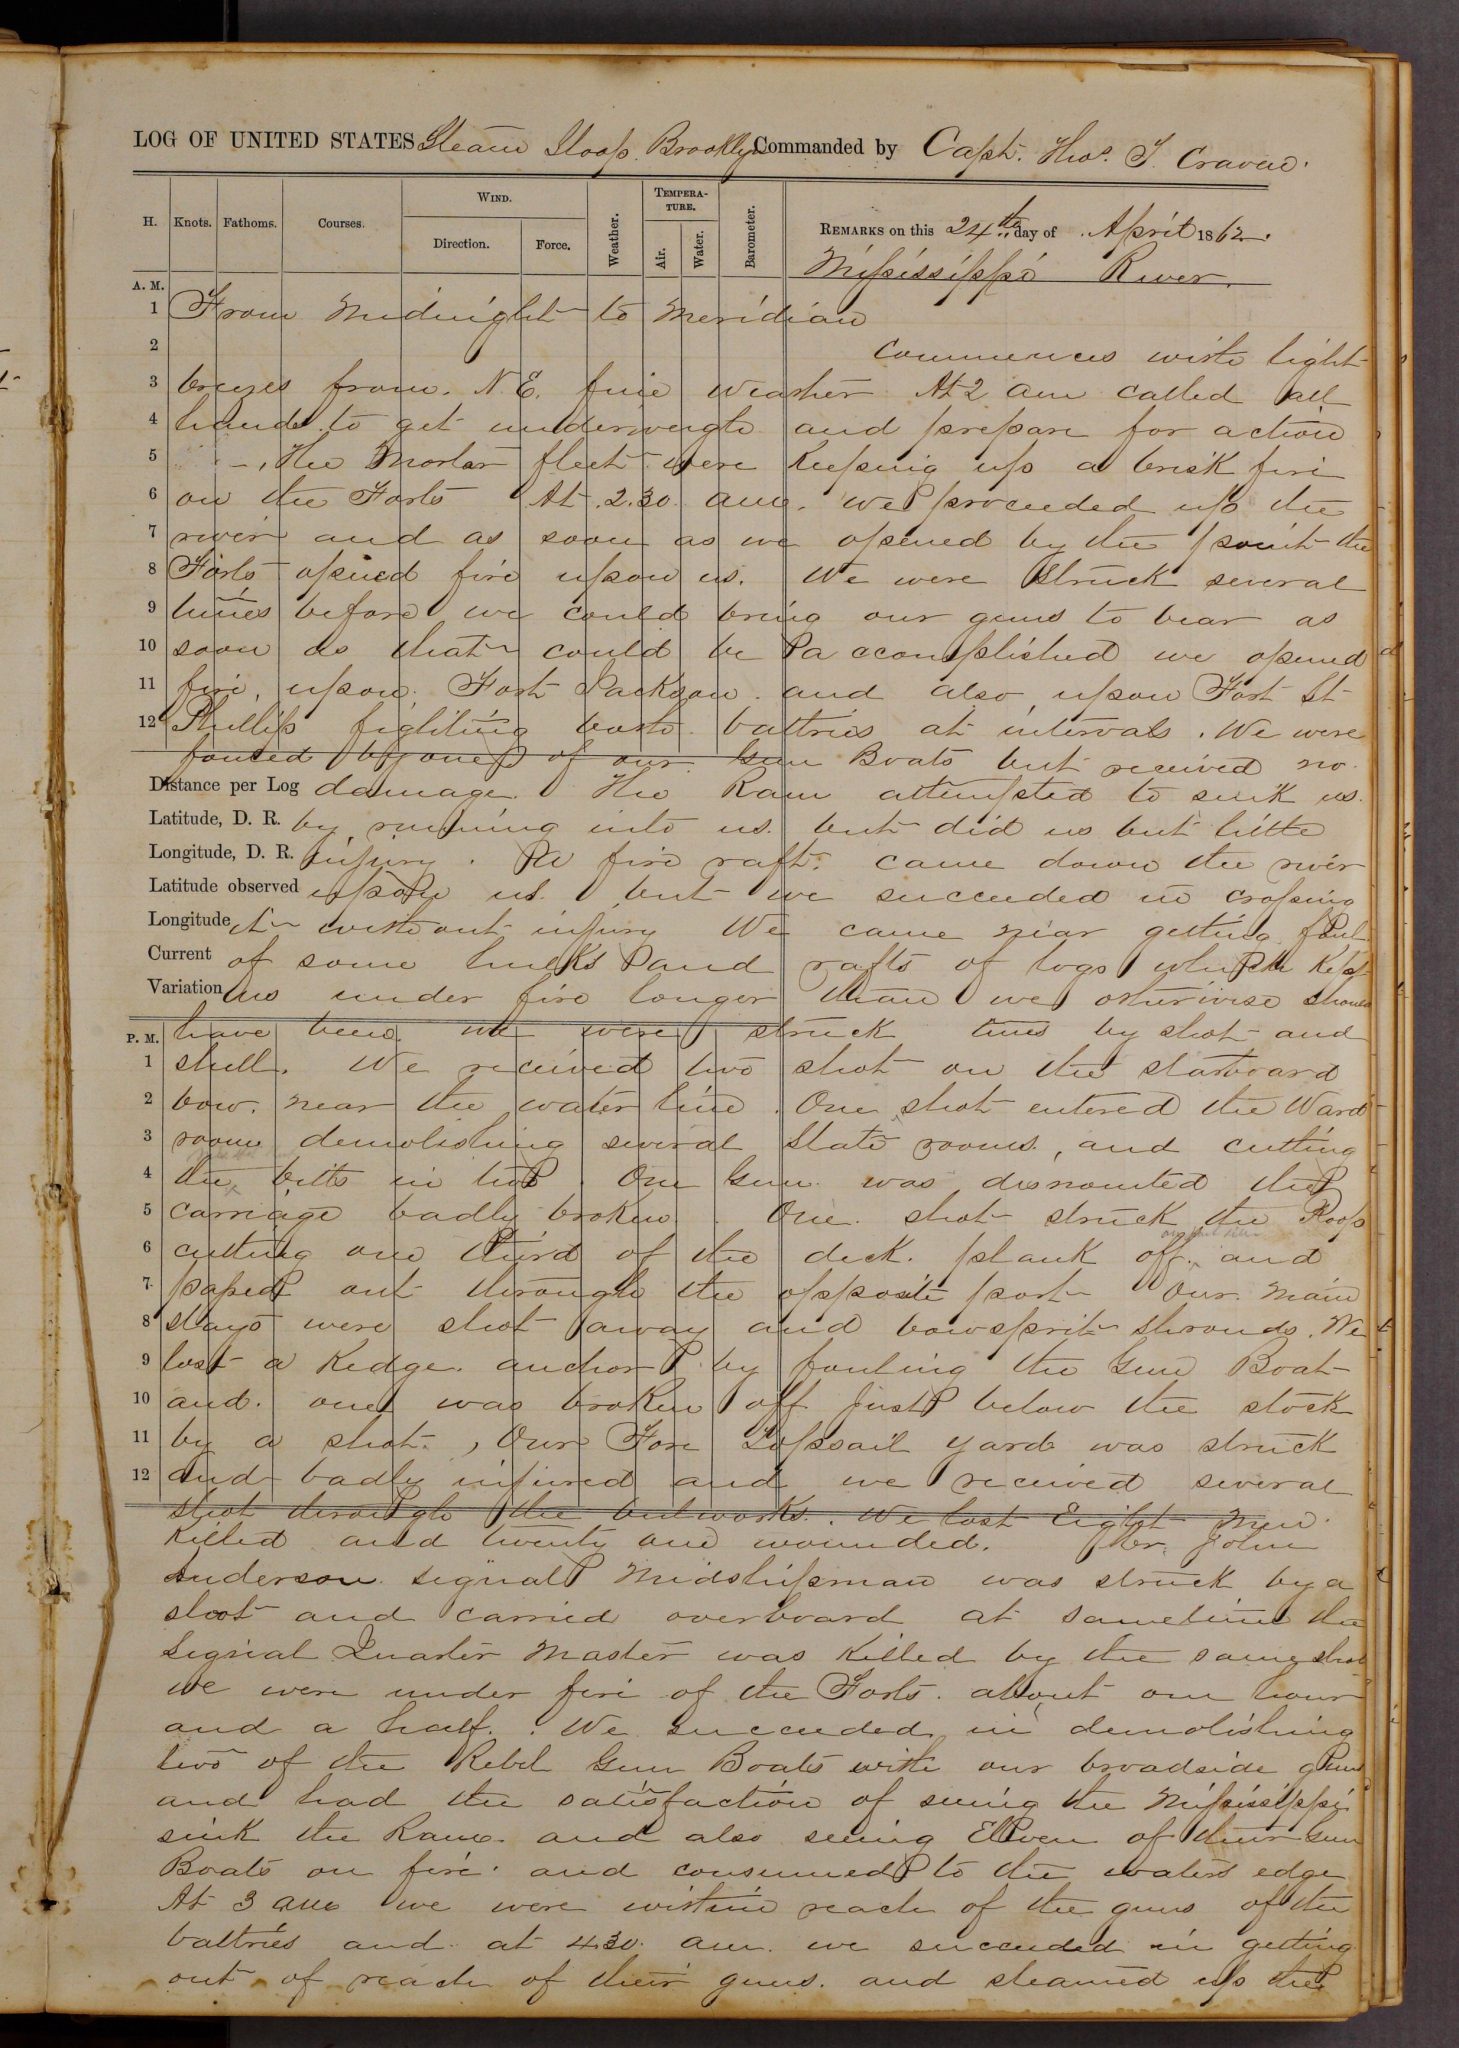 LOG OF UNITED STATES Steam Sloop Brooklyn Commanded by Capt. Thos. T. Craven.
H. Knots. Fathoms. Courses. WIND. Direction. Force. Weather. TEMPERATURE. Air. Water. Barometer. REMARKS on this 24th day of April 1862.
Mississippi River.
A. M.
1 From Midnight to Meridian
2 Commences with light
3 breezes from N.E. fine weather At 2 am called all
4 hands to get underweigh and prepare for action
5 The Mortar fleet were Keeping up a brisk fire
6 on the Forts At 2.30 am. we proceeded up the
7 river and as soon as we opened by the point the
8 Forts opened fire upon us. We were struck several
9 times before we could bring our guns to bear as
10 soon as that could be accomplished we opened
11 fire, upon Fort Jackson and also upon Fort St
12 Phillip fighting both battries at intervals. We were
fouled by one of our Gun Boats but received no
Distance per Log damage. The Ram attempted to sink us
Latitude, D. R. by running into us but did us but little
Longitude, D. R. injury. A fire raft came down the river
Latitude observed upon us but we succeeded in crossing
Longitude it without injury We came near getting foul
Current of some hulks and rafts of logs which Kept
Variation us under fire longer than we otherwise should
have been we were struck times by shot and
P. M.
1 shell. We received two shot on the starboard
2 bow. near the water line. One shot entered the Ward
3 room demolishing several State rooms, and cutting
4 the bitts in two. One Gun was dismounted the
5 carriage badly broken. One shot struck the Poop
6 cutting one third of the deck plank off and
7 passed out through the opposite port Our main
8 stays were shot away and bowsprit shrouds. We
9 lost a Kedge anchor by fouling the Gun Boat
10 and one was broken off just below the stock
11 by a shot, Our Fore Topsail yard was struck
12 and badly injured and we received several
shot through the bulworks. We lost Eight men
Killed and twenty one wounded. Mr. John
Anderson signal Midshipman was struck by a
shot and carried overboard at sametime the
Signal Quarter Master was Killed by the same shot
we were under fire of the Forts about one hour
and a half. We succeeded in demolishing
two of the Rebel Gun Boats with our broadside guns
and had the satisfaction of seeing the Mississippi
sink the Ram and also seeing Eleven of their Gun
Boats on fire and consumed to the waters edge
At 3 am we were within reach of the guns of the
battries and at 4.30 am. we succeeded in getting
out of reach of their guns. and steamed up the